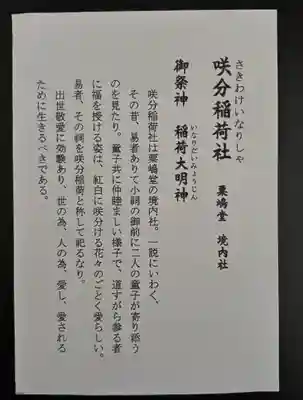 さきわけいなりしゃ
咲分稲荷社
粟嶋堂 境内社
いなりだいみょうじん
御祭神 稲荷大明神
咲分稲荷社は粟嶋堂の境内社。一説にいわく、
その昔、易者ありて小祠の御前に二人の童子が寄り添う
のを見たり。童子共に仲睦ましい様子で、道すがら参る者
に福を授ける姿は、紅白に咲分ける花々のごとく愛らしい。
易者、その祠を咲分稲荷と称して祀るなり。
出世敬愛に効験あり、世の為、人の為、愛し、愛される
ために生きるべきである。